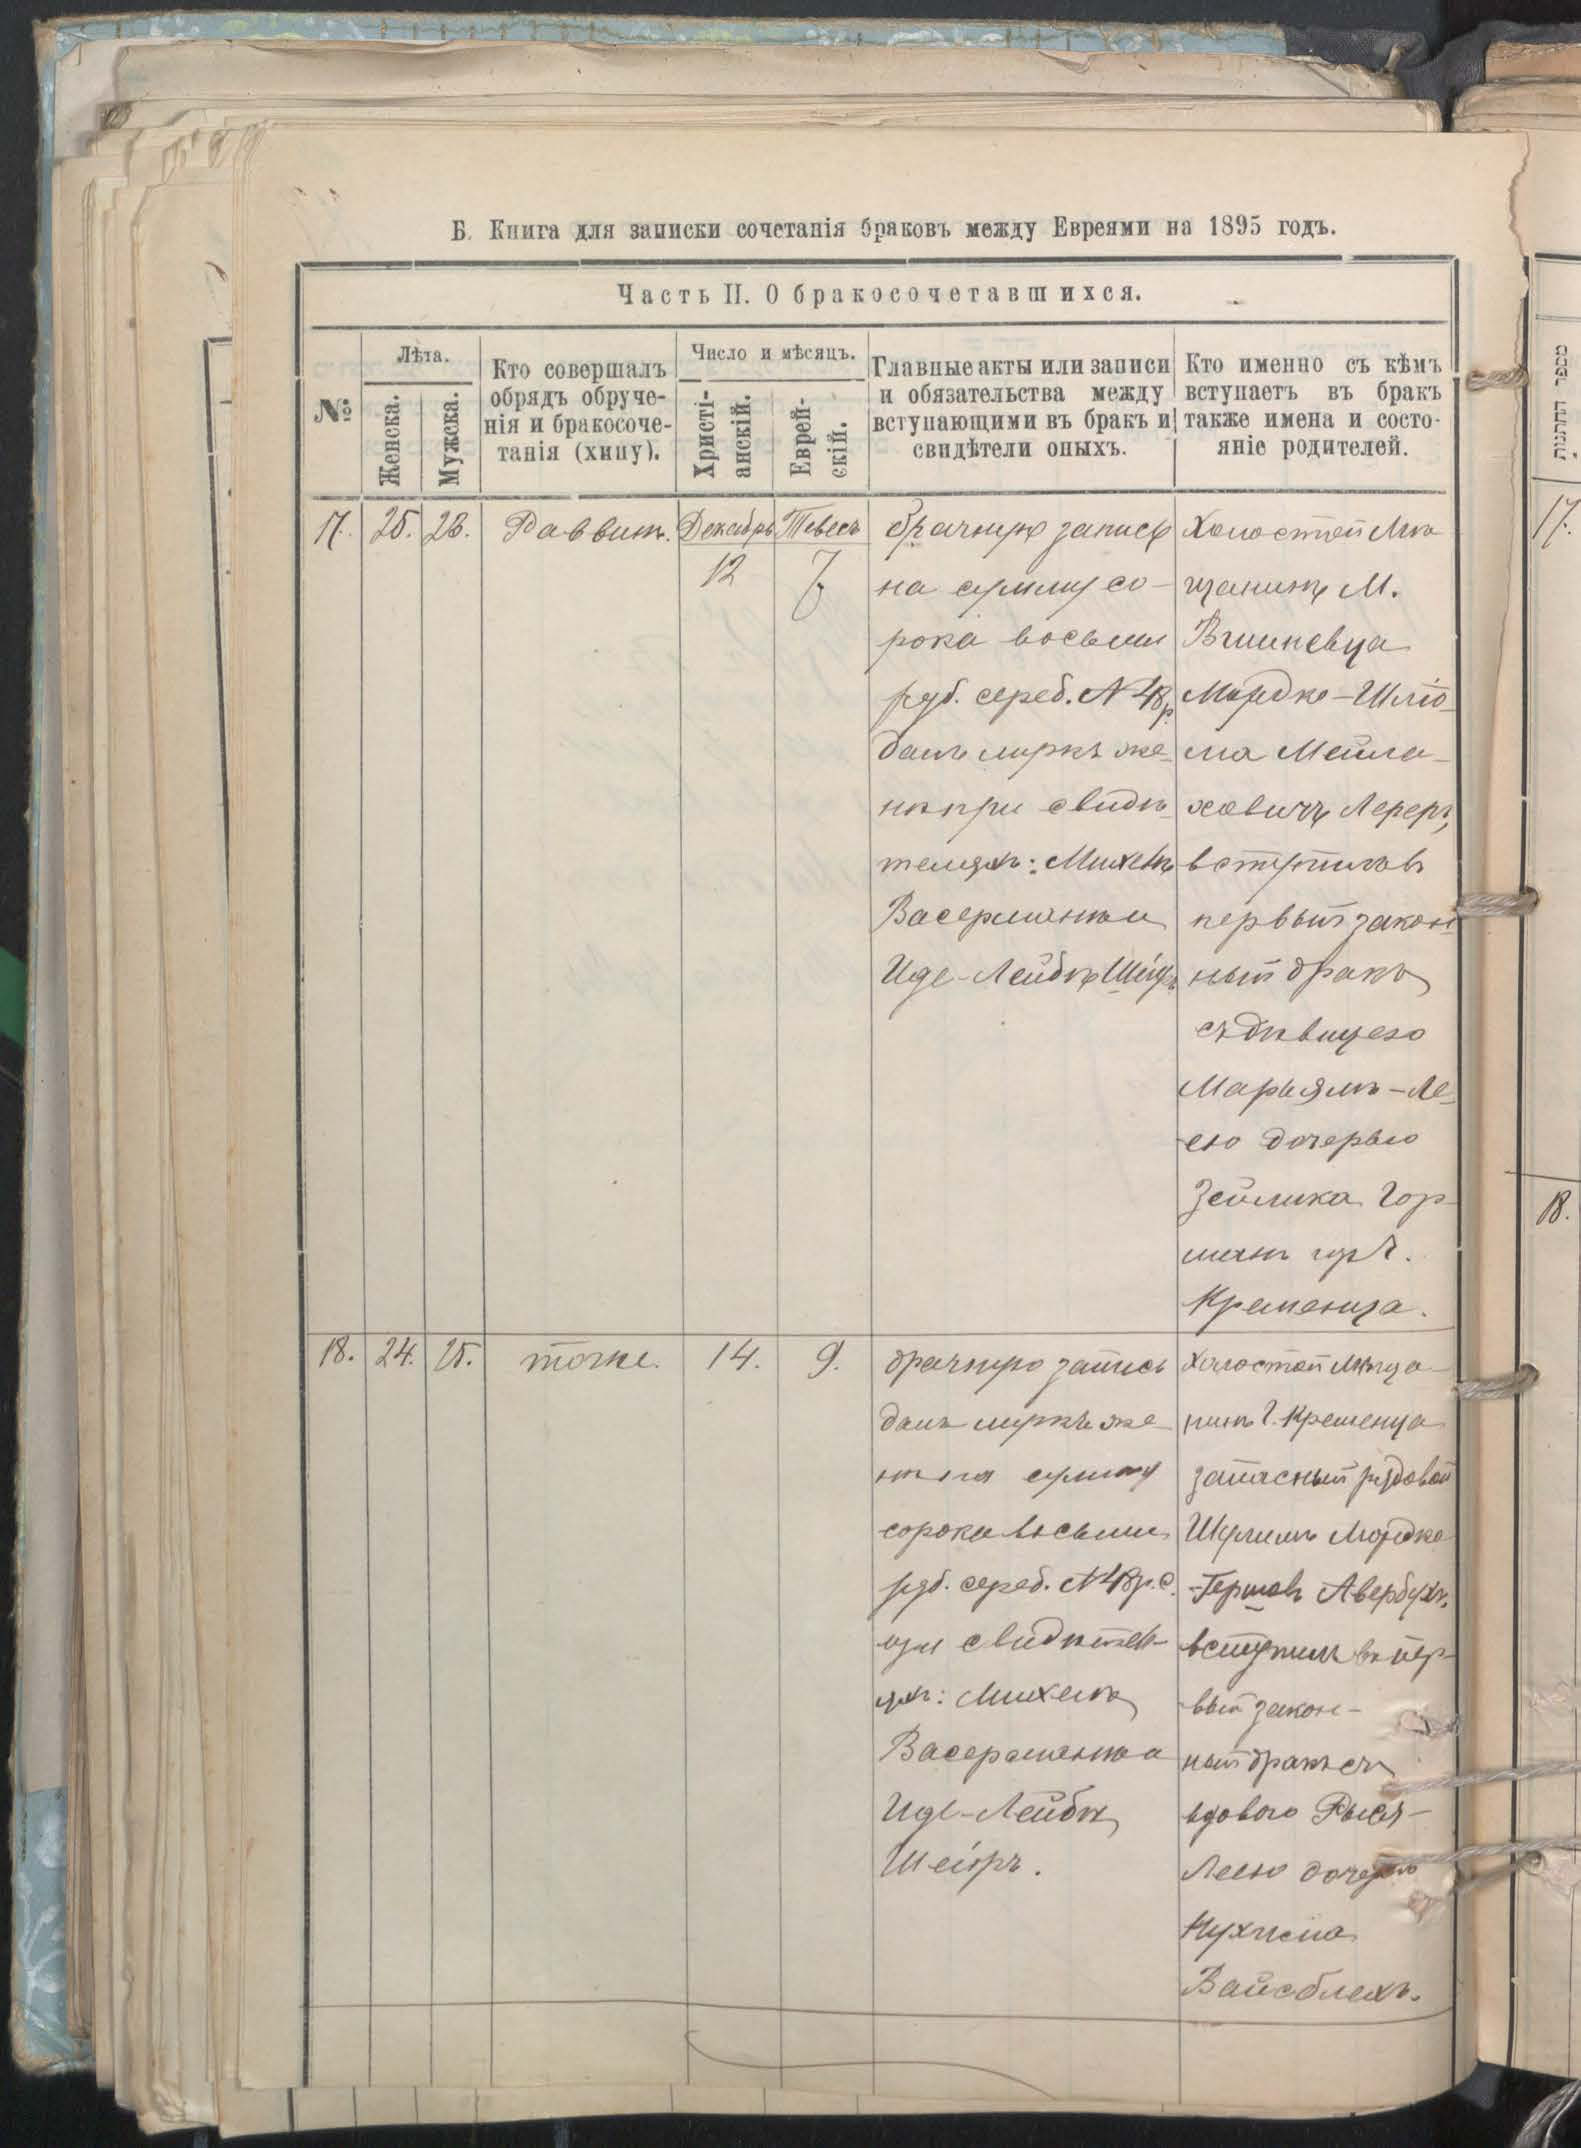 Б. Книга для записки сочетанія браковъ между Евреями на 1895 годъ.
Часть II. О бракосочетавшихся.
№
Лѣта.
Женска.
Мужска.
Кто совершалъ
обрядъ обруче-
нія и бракосоче-
танія (хипу).
Число и мѣсяцъ.
Христі-
анскій.
Еврей-
скій.
Главные акты или записи
и обязательства между
вступающими въ бракъ и
свидѣтели оныхъ.
Кто именно съ кѣмъ
вступаетъ въ бракъ
также имена и состо-
яніе родителей.
17. 25. 28. Раввинъ. Декабрь Тевесъ
12 7
брачную запись
на сумму со-
рока восьми
руб. сереб. N 48 р.
далъ мужъ же-
нѣ при свидѣ-
теляхъ: Михелѣ
Васерманъ и
Иде-Лейбѣ Шеіръ
Холостой Мѣ-
щанинъ М.
Вишневца
Мордко-Шліо-
ма Мейла-
ховичъ Лереръ,
вступилъ въ
первый закон-
ный бракъ
съ дѣвицею
Марьямъ-Ле-
ею дочерью
Зейлика Гор-
манъ гор.
Кременца.
18. 24. 25. тоже. 14. 9.
брачную запись
далъ мужъ же-
нѣ на сумму
сорока восьми
руб. сереб. N 48 р. с.
при свидѣтел-
яхъ: Михелѣ
Васерманъ и
Иде-Лейбѣ
Шеіръ.
Холостой Мѣща-
нинъ г. Кременца
запасный рядовой
Шулимъ Мордко
-Гершовъ Авербухъ,
вступилъ въ пер-
вый закон-
ный бракъ съ
вдовою Рыся-
Леею дочерью
Нухима
Вайсблехъ.
מספר החתנות
17.
18.